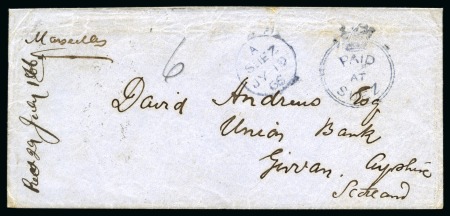 Marseilles
6
A
SUEZ
JY 19
66
PAID
AT
SUEZ
David Andrews Esq
Union Bank
Girvan. Ayrshire
Scotland
Recd 29 July 1866